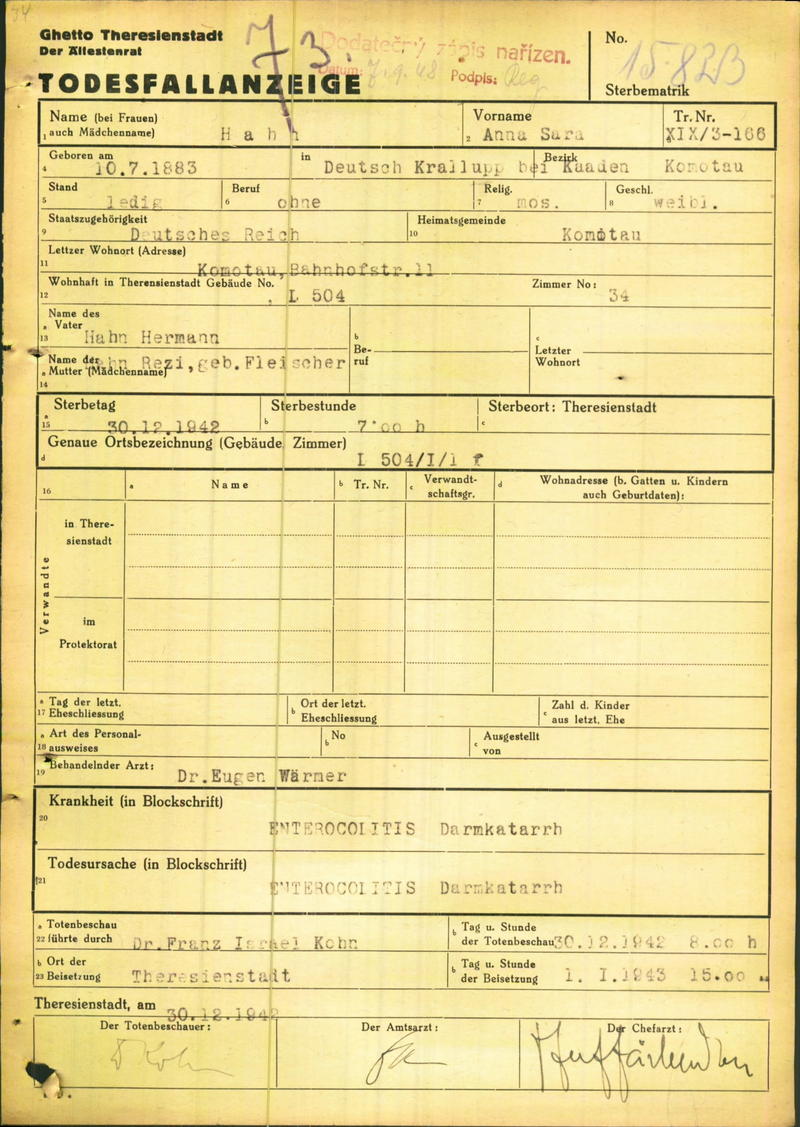 Ghetto Theresienstadt
Der Ältestenrat
TODESFALLANZEIGE
73
Dodatečný zápis nařízen.
Datum: 7.9.48 Podpis:
No. 15.823
Sterbematrik
Name (bei Frauen)
1 auch Mädchenname) Hahn
2 Vorname Anna Sara
Tr. Nr. XIX/3-166
4 Geboren am 10.7.1883 in Deutsch Krallupp bei Kaaden Bezirk Komotau
5 Stand ledig 6 Beruf ohne 7 Relig. mos. 8 Geschl. weibl.
9 Staatszugehörigkeit Deutsches Reich 10 Heimatsgemeinde Komotau
11 Lettzer Wohnort (Adresse) Komotau, Bahnhofstr.11
12 Wohnhaft in Therensienstadt Gebäude No. L 504 Zimmer No: 34
13 a Name des Vater Hahn Hermann
14 a Name der Mutter (Mädchenname) Rezi, geb. Fleischer
b Beruf
c Letzter Wohnort
15 a Sterbetag 30.12.1942 b Sterbestunde 7.00 h c Sterbeort: Theresienstadt
d Genaue Ortsbezeichnung (Gebäude Zimmer) L 504/I/1 f
16 a Name b Tr. Nr. c Verwandtschaftsgr. d Wohnadresse (b. Gatten u. Kindern
auch Geburtdaten):
Verwandte
in Theresienstadt
im
Protektorat
17 a Tag der letzt. Eheschliessung b Ort der letzt. Eheschliessung c Zahl d. Kinder aus letzt. Ehe
18 a Art des Personalausweises b No c Ausgestellt von
19 Behandelnder Arzt: Dr.Eugen Wärmer
Krankheit (in Blockschrift)
20 ENTEROCOLITIS Darmkatarrh
Todesursache (in Blockschrift)
21 ENTEROCOLITIS Darmkatarrh
22 a Totenbeschau führte durch Dr.Franz Israel Kohn b Tag u. Stunde der Totenbeschau 30.12.1942 8.00 h
23 b Ort der Beisetzung Theresienstadt b Tag u. Stunde der Beisetzung 1. I.1943 15.00
Theresienstadt, am 30.12.1942
Der Totenbeschauer: Der Amtsarzt: Der Chefarzt: